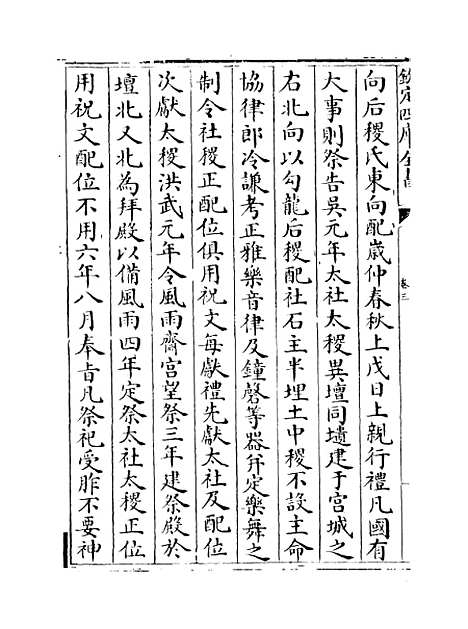 欽定四庫全書
卷三
向后稷氏東向配歲仲春秋上戊日上親行禮凡國有
大事則祭告吳元年太社太稷異壇同壝建于宮城之
右北向以勾龍后稷配社石主半埋土中稷不設主命
協律郎冷謙考正雅樂音律及鐘磬等器并定樂舞之
制令社稷正配位俱用祝文每獻禮先獻太社及配位
次獻太稷洪武元年令風雨齋宮望祭三年建祭殿於
壇北又北為拜殿以備風雨四年定祭太社太稷正位
用祝文配位不用六年八月奉旨凡祭祀受胙不要神